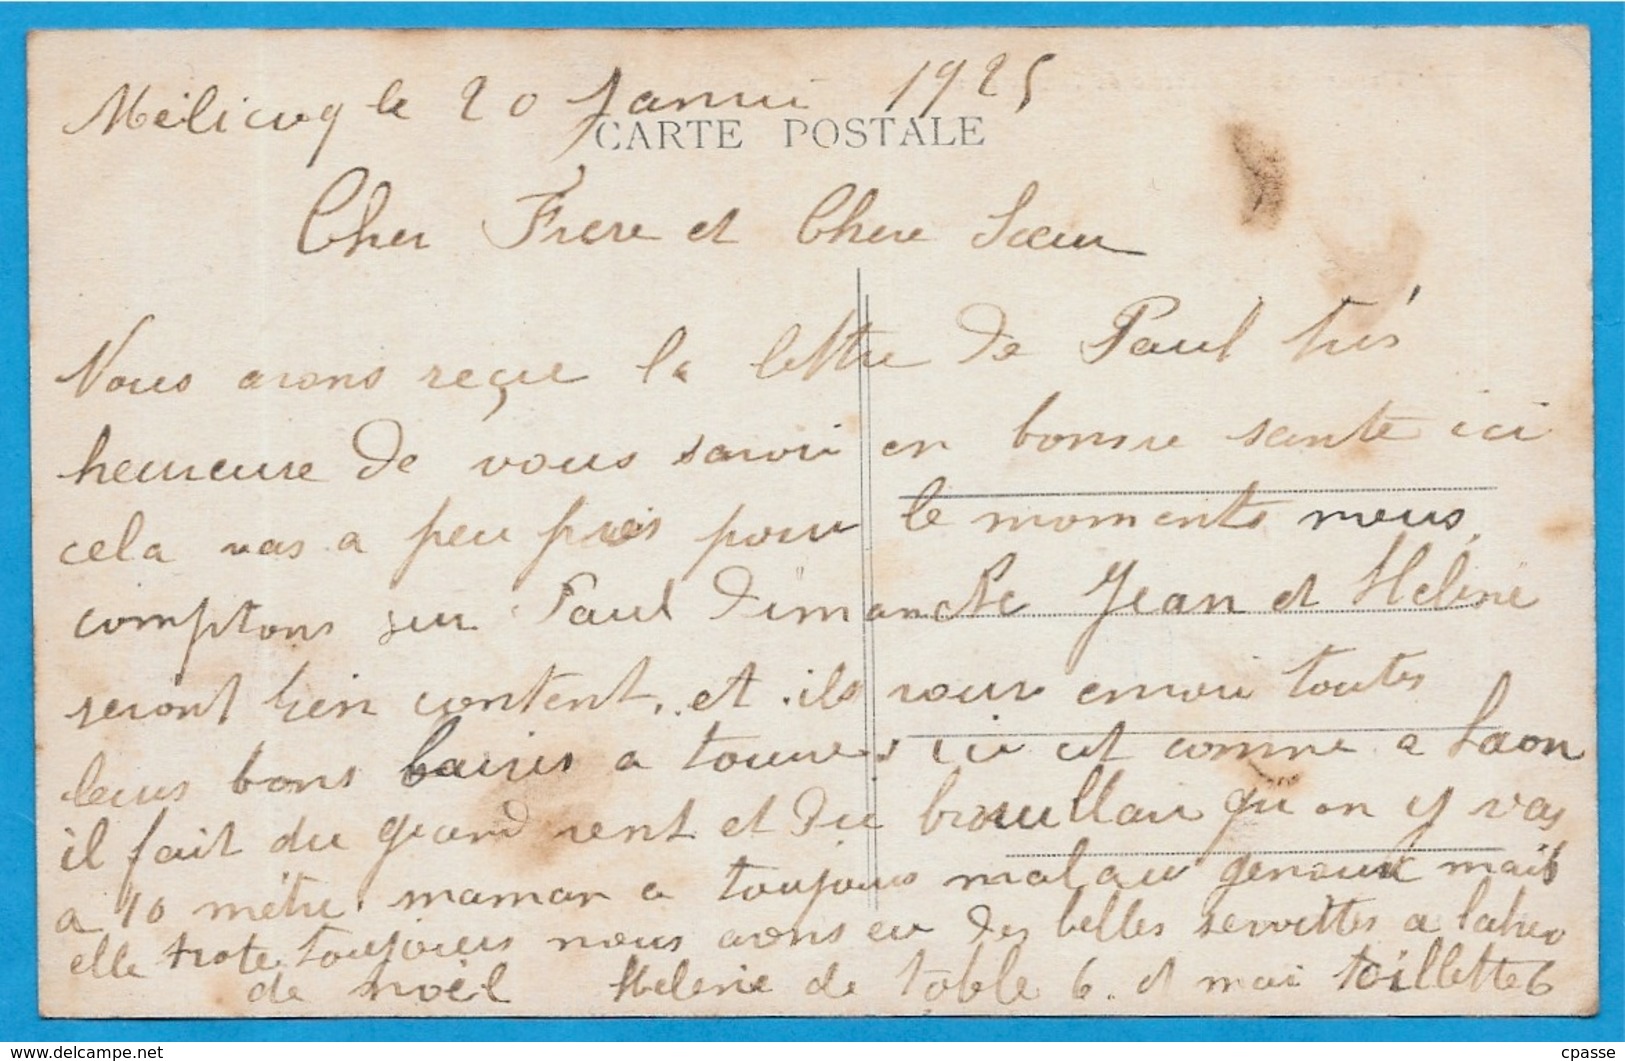 Mélicocq le 20 Janvie 1925
CARTE POSTALE
Cher Frere et Chere Sœur
Nous avons reçue la lettre de Paul très
heureuse de vous savoir en bonne sante ici
cela vas a peu près pour le moments nous
comptons sur Paul Dimanche Jean et Helene
seront bien content, et ils vous envoie toutes
leurs bons baisés a tourne ici est comme a Laon
il fait du grand vent et du brouillau qu on y vas
a 10 mètre. maman a toujours mal au genoux mais
elle trote toujours nous avons eu des belles serviettes a
de noël Helene de table 6. et moi toillette 6
cpasse